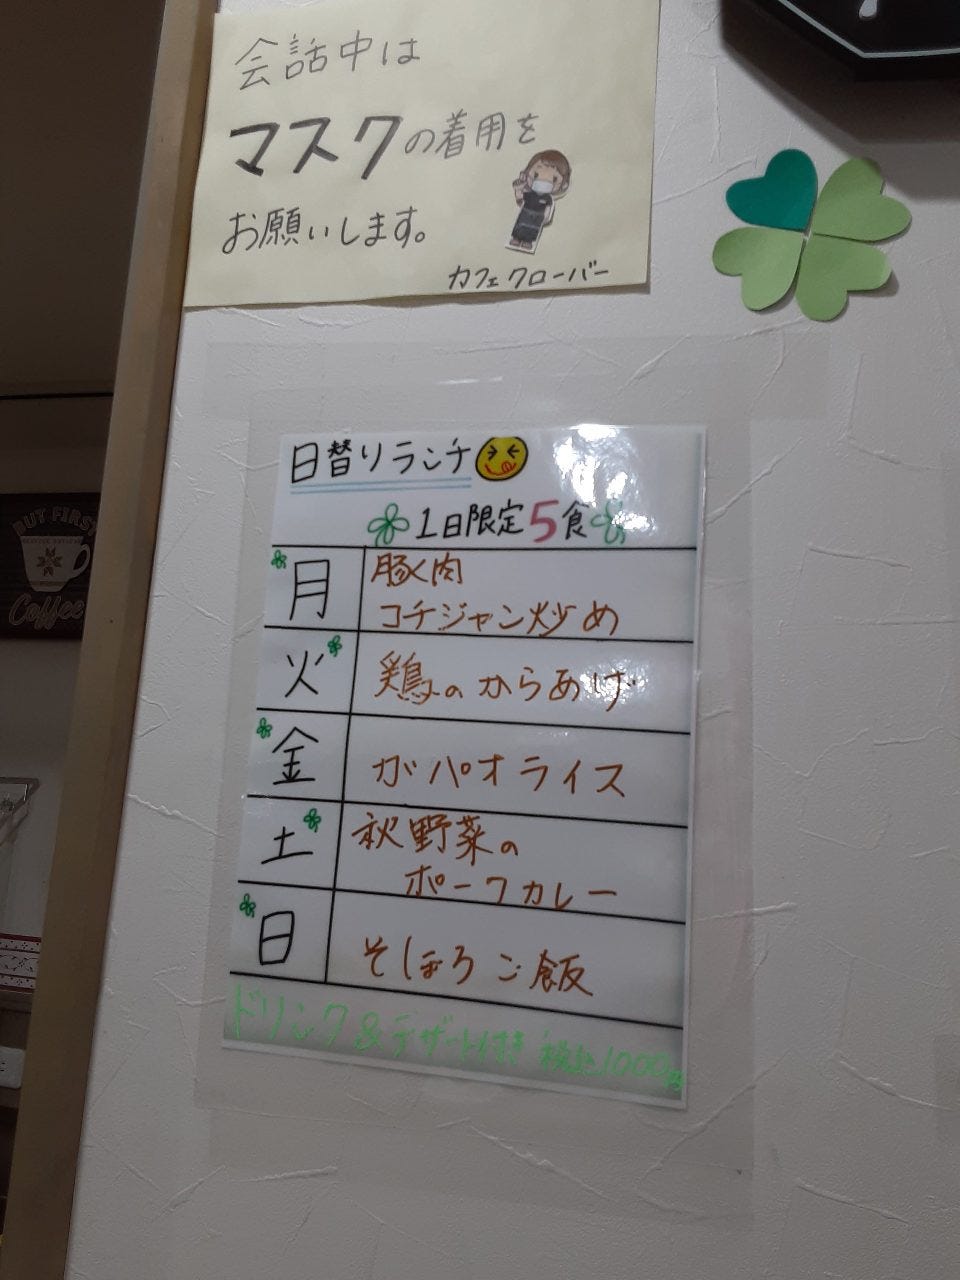 会話中は
マスクの着用を
お願いします。
カフェクローバー
日替りランチ
1日限定5食
月
豚肉
コチジャン炒め
火
鶏のからあげ
金
ガパオライス
土
秋野菜の
ポークカレー
日
そぼろご飯
ドリンク&デザート付き 税込1000円
BUT FIRST
Coffee